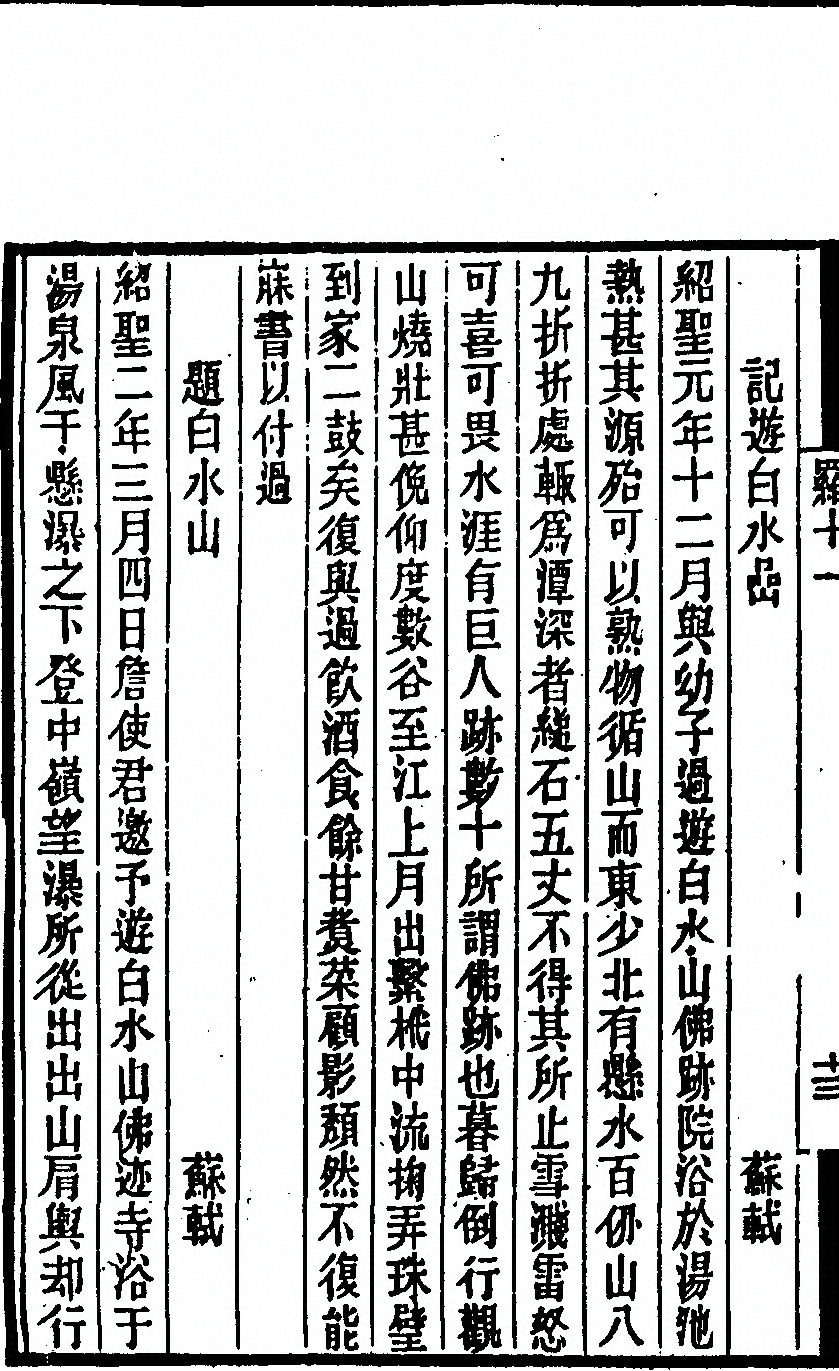 羅十一
十三
記遊白水嵓 蘇軾
紹聖元年十二月與幼子過遊白水山佛跡院浴於湯池
熱甚其源殆可以熟物循山而東少北有懸水百仞山八
九折折處輒爲潭深者縋石五丈不得其所止雪濺雷怒
可喜可畏水涯有巨人跡數十所謂佛跡也暮歸倒行觀
山燒壯甚俛仰度數谷至江上月出擊栰中流掬弄珠璧
到家二鼓矣復與過飲酒食餘甘煑菜顧影頹然不復能
寐書以付過
題白水山 蘇軾
紹聖二年三月四日詹使君邀予遊白水山佛迹寺浴于
湯泉風于懸瀑之下登中嶺望瀑所從出出山肩輿却行